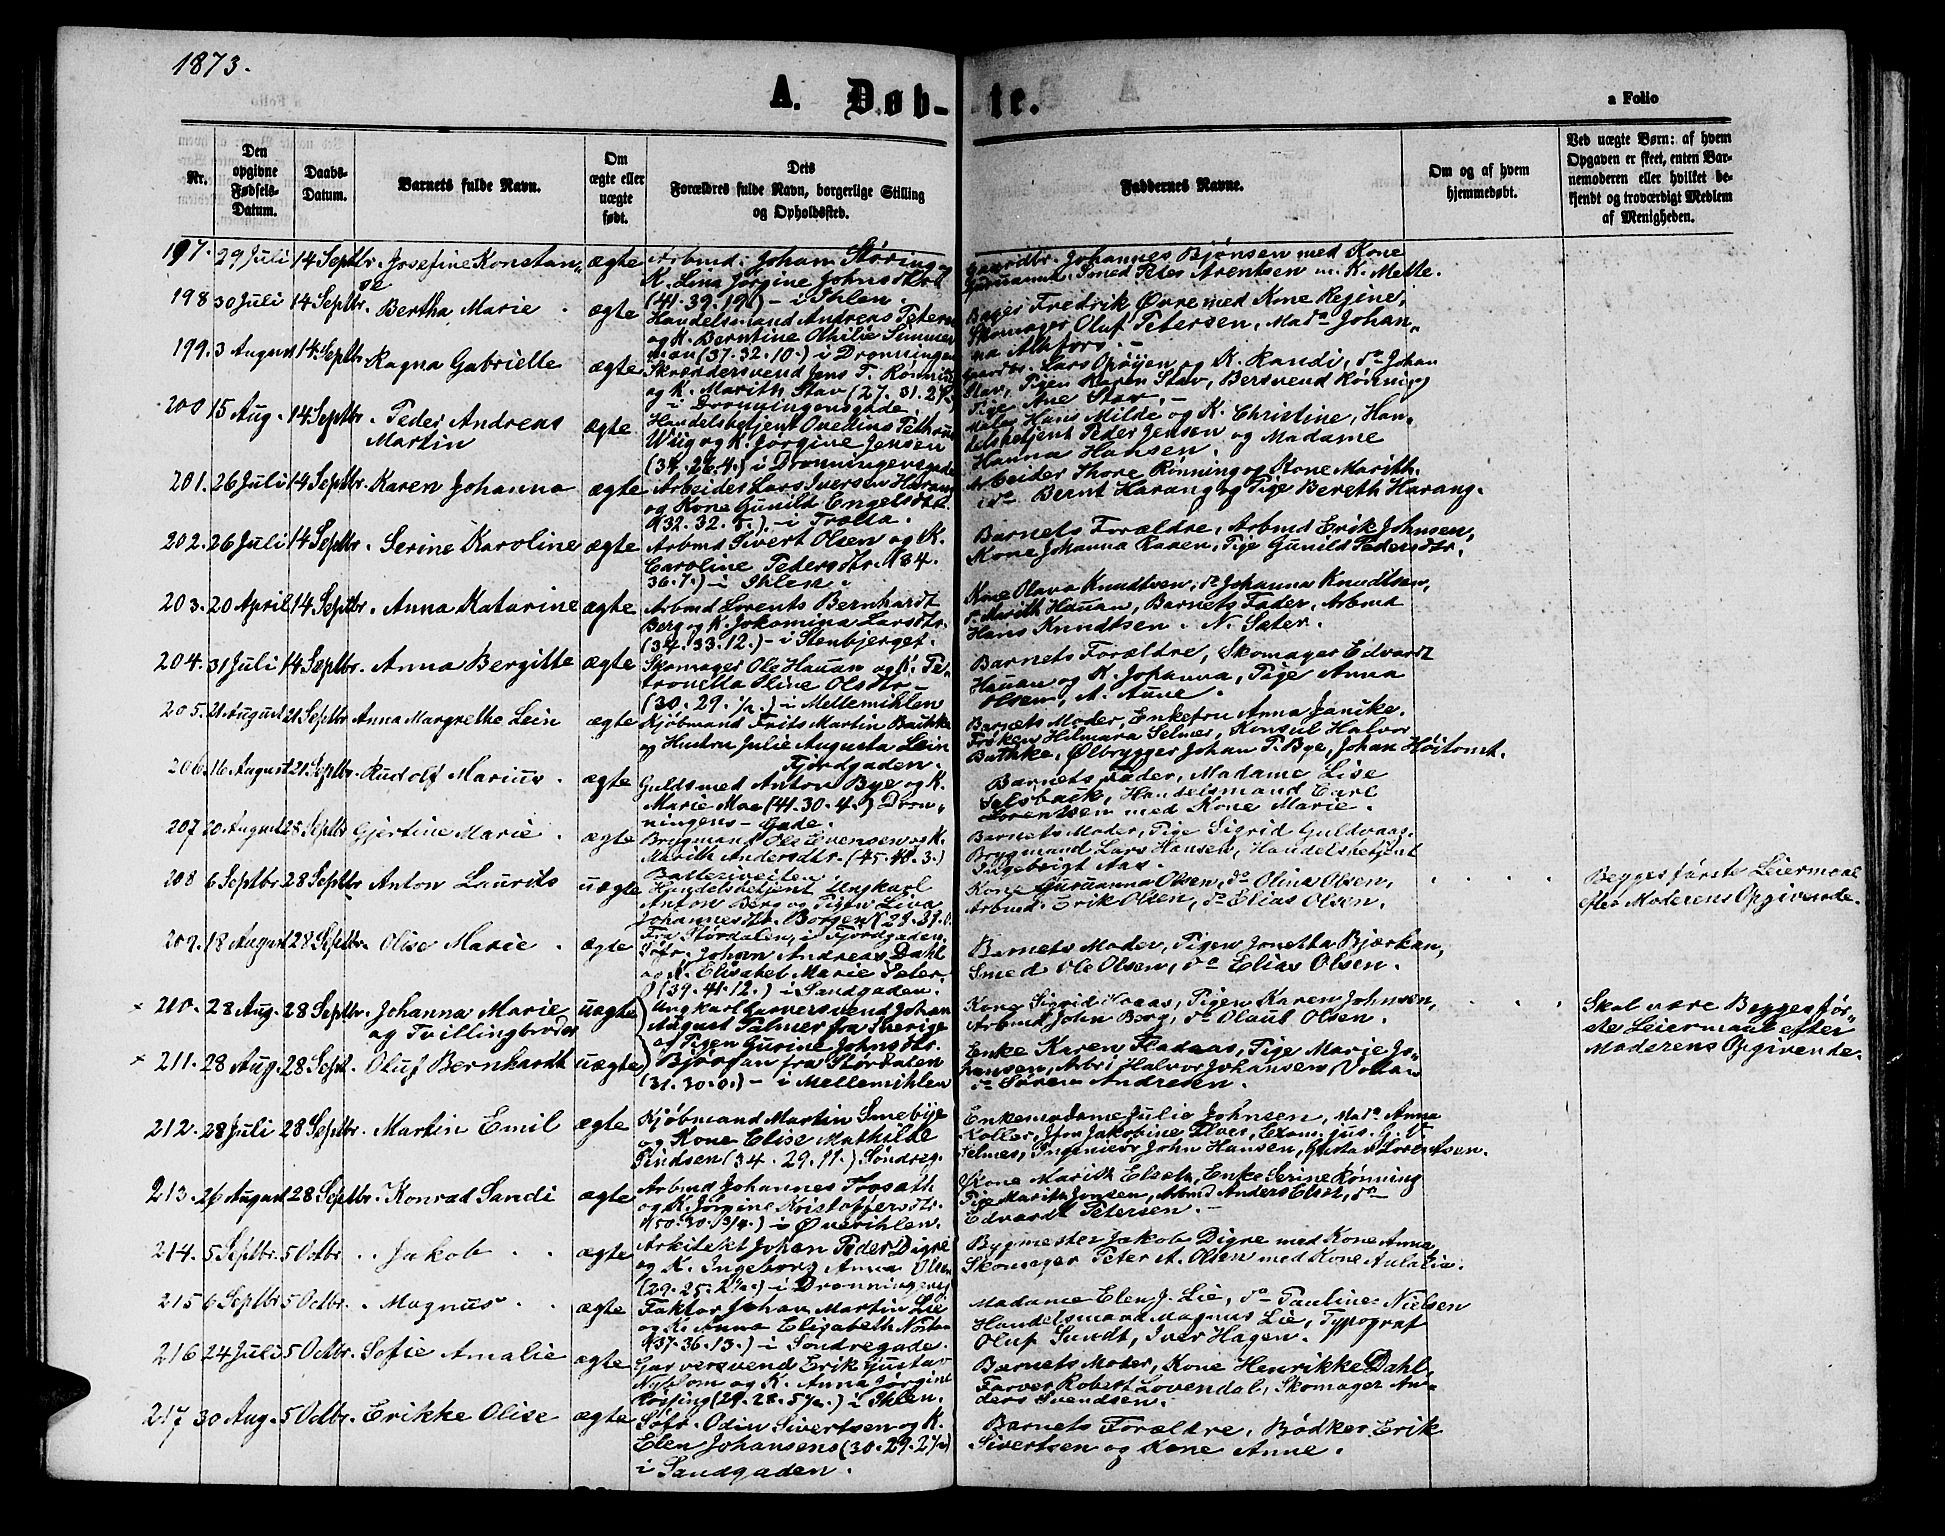 1873.
A. Døb-
te.
a Folio
Nr.
Den opgivne Fødsels-Datum.
Daabs-Datum.
Barnets fulde Navn.
Om ægte eller uægte født.
Dets
Forældres fulde Navn, borgerlige Stilling
og Opholdssted.
Faddernes Navne.
Om og af hvem
hjemmedøbt.
Ved uægte Børn: af hvem
Opgaven er skeet, enten Bar-
nemoderen eller hvilket be-
kjendt og troværdigt Medlem
af Menigheden.
197. 29 Juli 14 Septbr. Josefine Konstan- ægte
Arbmd. Johan Støring
K. Lina Jørgine Johnsdtr
(41. 39. 19.) - i Ihlen.
Gaardbr. Johannes Bjønsen med Kone
Smed Peter Arentsen m. K. Mette.
198 30 Juli 14 Septbr. Bertha Marie. ægte
Handelsmand Andreas Petersen
og K. Berntine Othilie Simmer
man (37. 32. 10.) i Dronningen
Bager Fredrik Øvre med Kone Regine,
Skomager Oluf Petersen, Mada Johan-
na Alkfors. -
199. 3 August 14 Septbr. Ragna Gabrielle ægte
Skræddersvend Jens F. Rønning
og K. Marith Stav (27. 31. 2
i Dronningensgade.
Gaardbr. Lars Opøyen og K. Randi, do Johan
Stav, Pigen Karen Stav, Bersvend Rønning
Pige Ane Stav. -
200 15 Aug. 14 Septbr. Peder Andreas
Martin ægte
Handelsbetjent Ovedius
Wiig og K. Jørgine Jensen
(34. 26. 4.) i Dronningensgade
Maler Hans Milde og K. Christine, Han-
delsbetjent Peder Jensen og Madame
Hanna Hansen.
201. 26 Juli 14 Septbr. Karen Johanna ægte
Arbeider Lars Iversen Harang
og Kone Gunild Engelsdtr.
(32. 32. 5.) - i Trolla.
Arbeider Thore Rønning og Kone Marith.
do Bernt Harang og Pige Bereth Harang.
202. 26 Juli 14 Septbr. Serine Karoline ægte
Arbmd Sivert Olsen og K.
Caroline Pedersdtr. (34.
36. 7.) - i Ihlen.
Barnets Forældre, Arbmd Erik Johnsen,
Kone Johanna Raaen, Pige Gunild Pedersdtr.
203. 20 April 14 Septbr. Anna Katarine ægte
Arbmd Lorents Bernhardt
Berg og K. Jokomina Larsdtr.
(34. 33. 12.) - i Stenbjerget.
Kone Olava Knudtsen, do Johanna Knudtsen,
do Marith Hauan, Barnets Fader, Arbmd
Hans Knudtsen. N. Sæter.
204. 31 Juli 14 Septbr. Anna Bergitte ægte
Skomager Ole Hauan og K. Pe-
tronella Oline Olsdtr -
(30. 29. ½.) - i Mellemihlen
Barnets Forældre, Skomager Edvardt
Hauan og K. Johanna, Pige Anna
Olsen, A. Aune.
205. 21 August 21 Septbr. Anna Margrethe Lein ægte
Kjøbmand Frits Martin Bathke
og Hustru Julie Augusta Lein
Fjordgaden.
Barnets Moder, Enkefru Anna Janike.
Frøken Hilmara Selmer, Konsul Halvor
Bathke, Ølbrygger Johan P. Bye, Johan Høitomt.
206. 16 August 21 Septbr. Rudolf Marius. ægte
Guldsmed Anton Bye og K.
Marie Moe (41. 30. 4.) Dron-
ningens-Gade.
Barnets Fader, Madame Lise
Selsback, Handelsmand Carl
Lorentsen med Kone Marie.
207 20 August 28 Septbr Gjertine Marie. ægte
Brygmand Ole Evensen og K.
Marith Andersdtr. (45. 40. 3.)
Batteriveiten.
Barnets Moder, Pige Sigrid Guldvaas.
Brygmand Lars Hansen, Handelsbetjent
Ingebrigt Aas.
208 6 Septbr. 28 Septbr Anton Laurits uægte
Handelsbetjent Ungkarl
Anton Berg og Pigen Liva
Johannesdtr. Borgen (29. 31. 0.
Fra Størdalen, i Fjordgaden.
Kone Gurianna Olsen, do Olina Olsen,
Arbmd. Erik Olsen, do Elias Olsen.
Begges første Leiermaal
efter Moderens Opgivende.
209. 18 August 28 Septbr. Olise Marie. ægte
Søfr. Johan Andreas Dahl
og K. Elisabet Marie Peter
(39. 41. 12.) i Sandgaden.
Barnets Moder, Pigen Jonetta Bjærkan,
Smed Ole Olsen, do Elias Olsen.
× 210. 28 Aug. 28 Septbr. Johanna Marie
og Tvillingbroder uægte
Ungkarl Garversvend Johan
August Palmer fra Sverige
af Pigen Gurine Johnsdtr.
Kone Sigrid Haaas, Pigen Karen Johnsen,
Arbmd John Borg, do Olaus Olsen.
Skal være Begges før-
ste Leiermaal efter
Moderens Opgivende.
× 211. 28 Aug. 28 Sept. Oluf Bernhardt uægte
Bjørgan fra Størdalen
(31. 30. 0.) - i Mellemihlen
Enke Karen Fladaas, Pige Marie Jo-
hansen, Arb. Halvor Johansen Vollan
do Søren Andresen.
212. 28 Juli 28 Septbr. Martin Emil ægte
Kjøbmand Martin Smebye
og Kone Elise Mathilde
Findsen (34. 29. 11.) Søndreg.
Enkemadame Julie Johnsen, Mada Anna
Koller, Jfru Jakobine Elver, Exam. jus. G. V.
Selmer, Ingeniør John Hansen, Gustav Lorentsen.
213. 26 August 28 Septbr. Konrad Sandi ægte
Arbmd Johannes Forsath
og K. Jørgine Kristoffersdtr.
(50. 30. 13/4.) - i Øverihlen.
Kone Marith Elset, Enke Serine Rønning
Pige Marith Jensen, Arbmd Anders Elset, do
Edvardt Petersen. -
214. 5 Septbr. 5 Octbr. Jakob. ægte
Arkitekt Johan Peder Digre
og K. Ingeborg Anna Olsen
(29. 25. 1½.) i Dronningensg
Bygmester Jakob Digre med Kone Anna,
Skomager Peter A. Olsen med Kone Aulalia.
215 6 Septbr. 5 Octbr. Magnus. ægte
Faktor Johan Martin Lie
og K. Anna Elizabeth
(37. 36. 13.) - i Søndregade.
Madame Elen J. Lie, do Pauline Nielsen
Handelsmand Magnus Lie, Typograf
Oluf Sundt, Iver Hagen.
216 24 Juli 5 Octbr. Sofie Amalie ægte
Garversvend Erik Gustav
Nyblom og K. Anna Jørgine
Røising (29. 28. 5½.) i Ihlen.
Barnets Moder, Kone Henrikke Dahl,
Farver Robert Lovendal, Skomager An-
ders Svendsen.
217 30 Aug. 5 Octbr. Erikke Olise ægte
Søfr. Odin Sivertsen og K.
Elen Johansens (30. 29. 2½)
i Sandgaden.
Barnets Forældre, Bødker Erik
Sivertsen og Kone Anne.